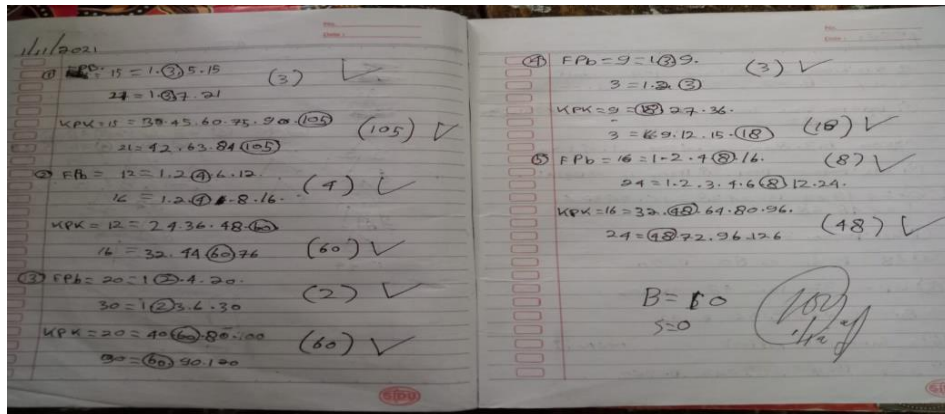 1/11/2021
① FPB = 15 = 1.3.5.15 (3)
21 = 1.3.7.21
KPK = 15 = 30.45.60.75.90.105 (105)
21 = 42.63.84.105
② FPb = 12 = 1.2.4.6.12. (4)
16 = 1.2.4.8.16.
KPK = 12 = 24.36.48.60
16 = 32.44.60.76 (60)
③ FPb = 20 = 1.2.4.20. (2)
30 = 1.2.3.6.30
KPK = 20 = 40.60.80.100 (60)
30 = 60.90.120
SIDU
④ FPb = 9 = 1.3.9. (3)
3 = 1.2.3
KPK = 9 = 18.27.36.
3 = 6.9.12.15.18 (18)
⑤ FPb = 16 = 1.2.4.8.16. (8)
24 = 1.2.3.4.6.8.12.24.
KPK = 16 = 32.48.64.80.96.
24 = 48.72.96.126 (48)
B = 10
S = 0
100